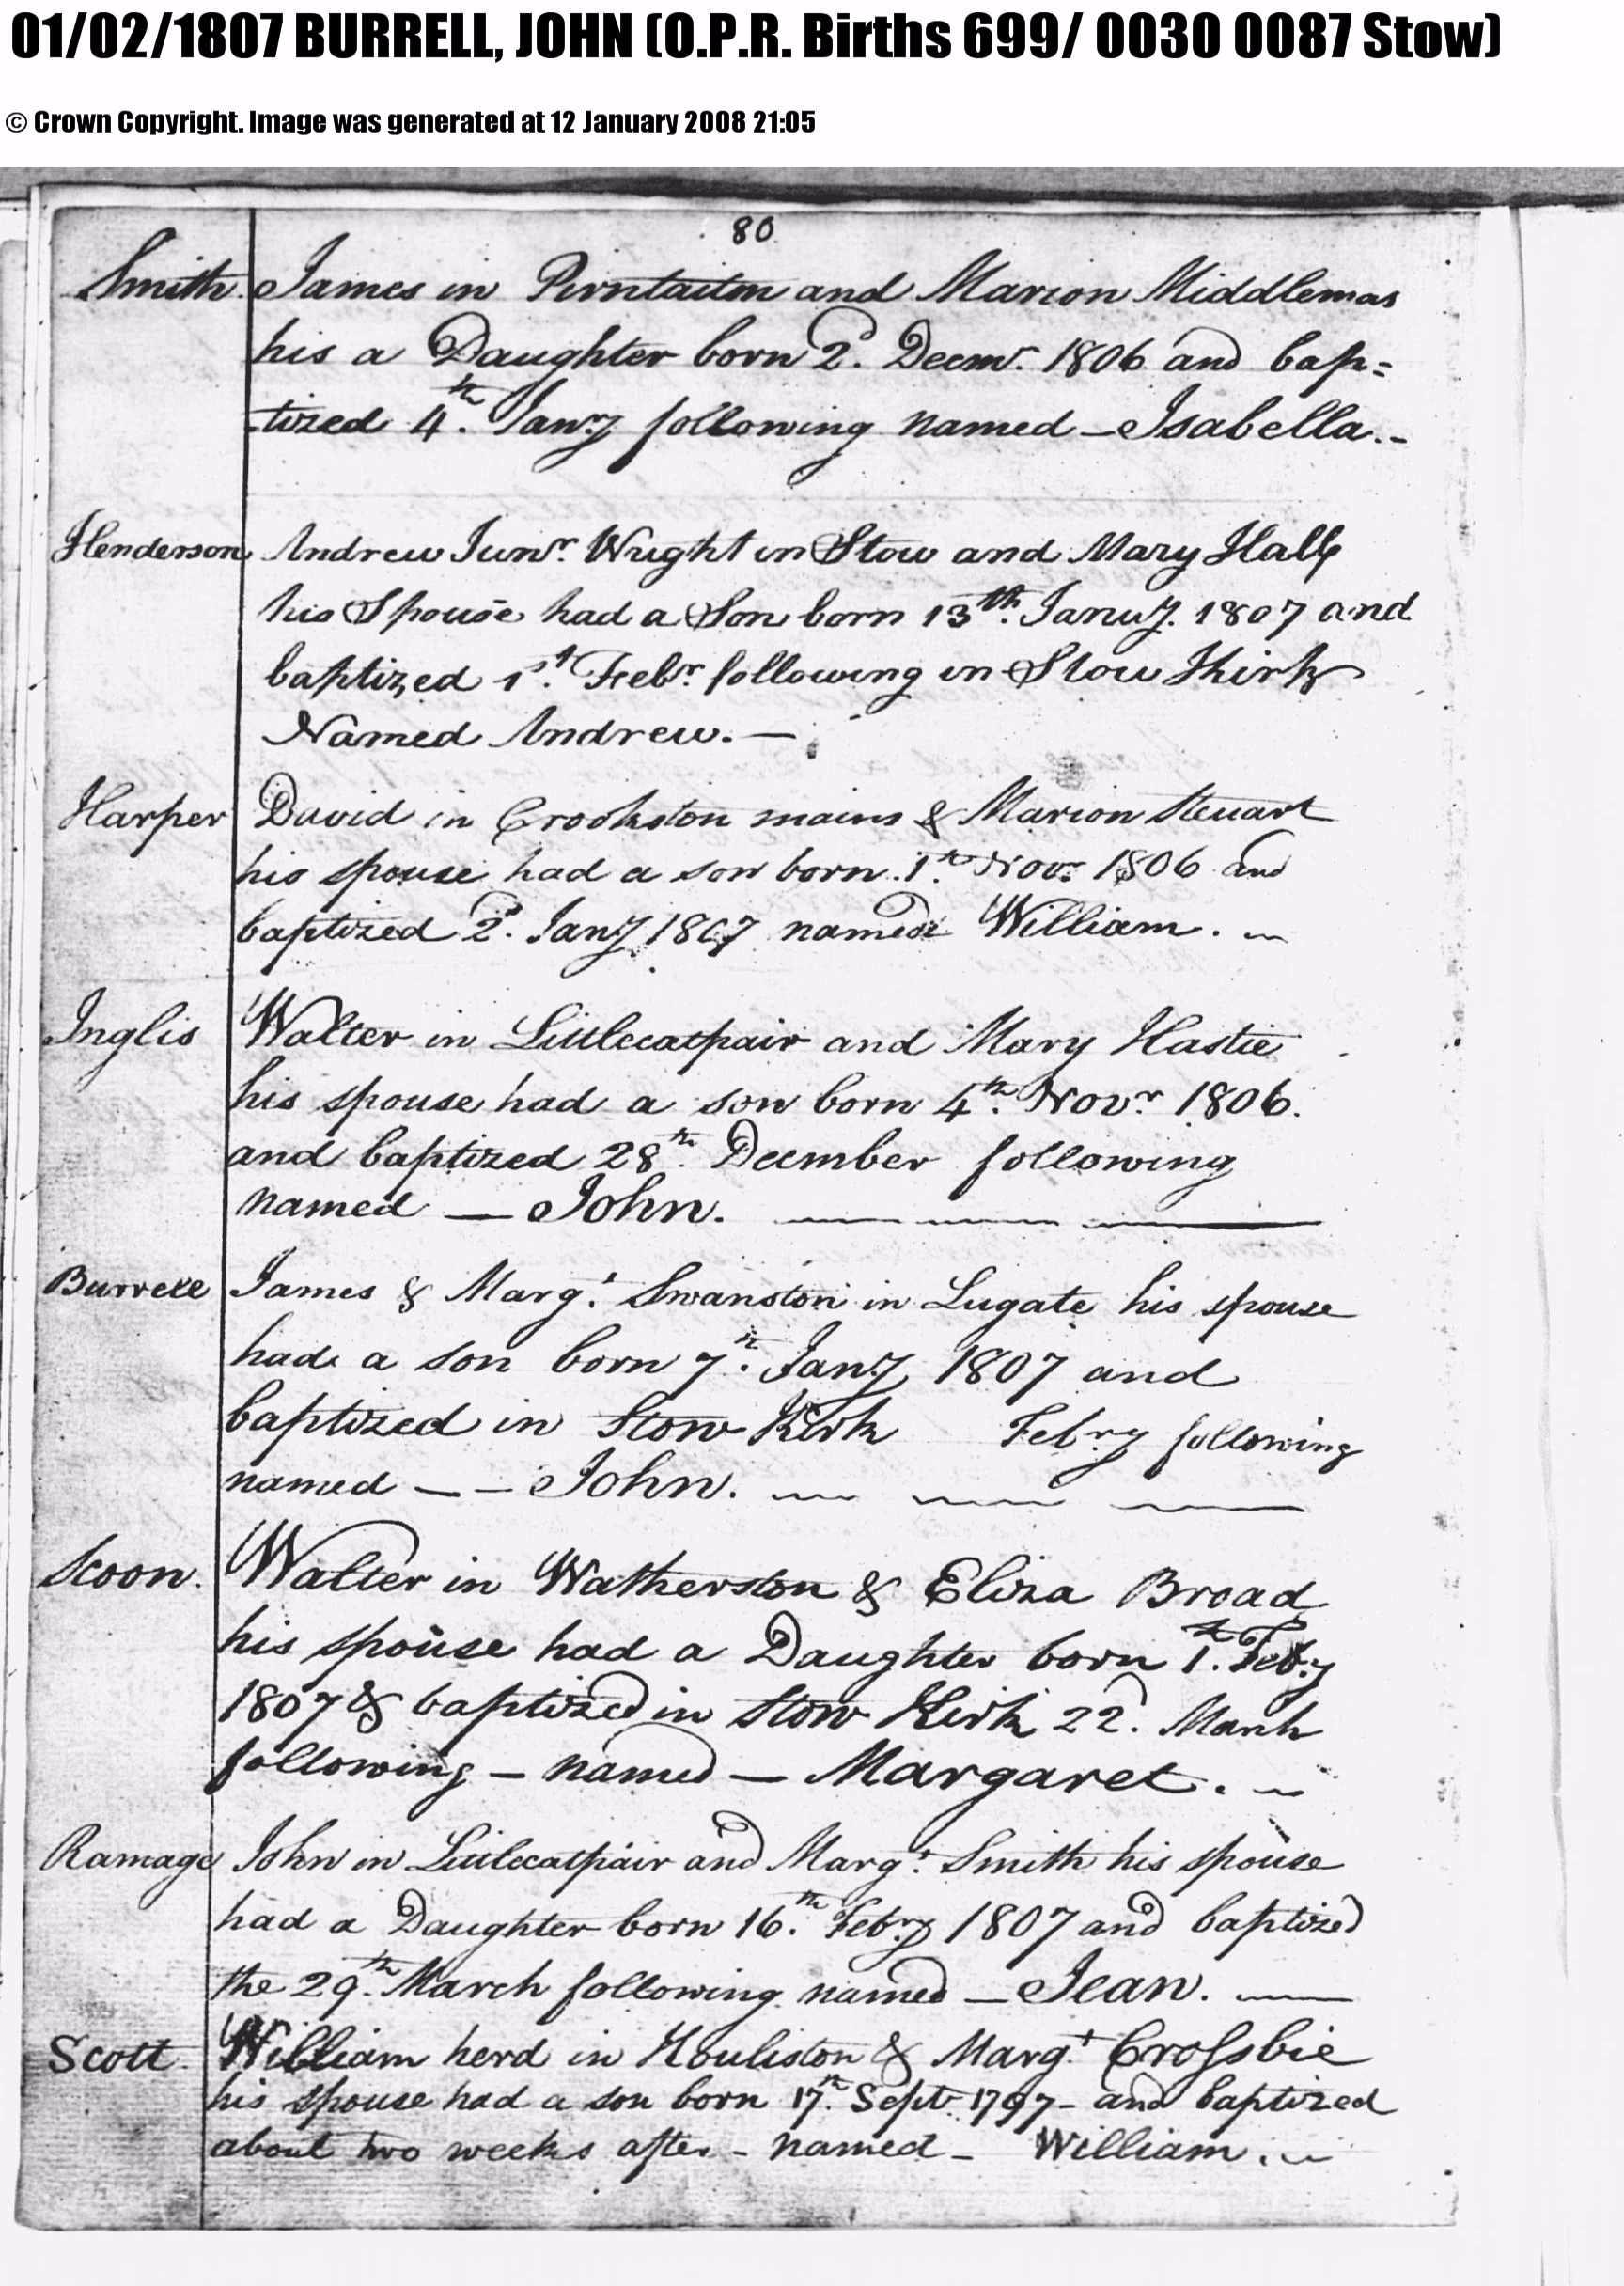 01/02/1807 BURRELL, JOHN (O.P.R. Births 699/ 0030 0087 Stow)
© Crown Copyright. Image was generated at 12 January 2008 21:05
80
Smith. James in Pirntaiton and Marion Middlemas
his a Daughter born 2d. Decmr. 1806 and bap=
tized 4th. Janry following named – Isabella. –
Henderson Andrew Junr. Wright in Stow and Mary Hall
his Spouse had a Son born 13th. Januy. 1807 and
baptized 1st. Febr. following in Stow Kirk
Named Andrew. —
Harper David in Crookston mains & Marion Steuart
his spouse had a son born 1st Novr. 1806 and
baptized 2d. Jany 1807 named William. –
Inglis Walter in Littlecatpair and Mary Hastie
his spouse had a son born 4th. Novr 1806.
and baptized 28th. December following
named — John.
Burrell James & Margt. Swanston in Lugate his spouse
had a son born 7th. Jany 1807 and
baptized in Stow Kirk Febry following
named — – John.
Scoon. Walter in Watherston & Eliza Broad
his spouse had a Daughter born 1st. Feby
1807 & baptized in Stow Kirk 22d. March
following – named — Margaret. –
Ramage John in Littlecatpair and Margt. Smith his spouse
had a Daughter born 16th. Febry 1807 and baptized
the 29th. March following named – Jean. —
Scott. William herd in Houliston & Margt Crossbie
his spouse had a son born 17th. Septr. 1797 – and baptized
about two weeks after – named – William. –